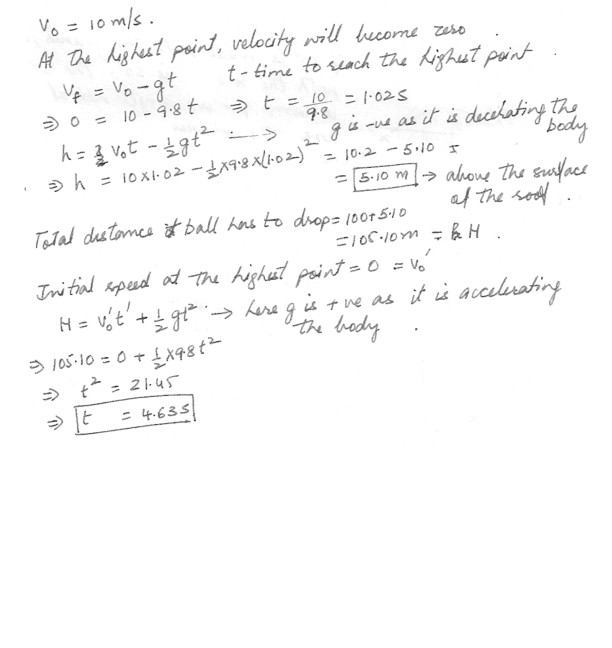 V₀ = 10 m/s.
At the highest point, velocity will become zero.
V_f = V₀ - gt     t - time to reach the highest point.
⇒ 0 = 10 - 9.8 t ⇒ t = 10/9.8 = 1.02 s
h = V₀t - ½gt² → g is -ve as it is decelerating the body
⇒ h = 10×1.02 - ½×9.8×(1.02)² = 10.2 - 5.10 =
= 5.10 m → above the surface of the roof.
Total distance ball has to drop = 100+5.10
= 105.10m = H.
Initial speed at the highest point = 0 = V₀'
H = V₀'t' + ½gt² → here g is +ve as it is accelerating the body.
⇒ 105.10 = 0 + ½×9.8t²
⇒ t² = 21.45
⇒ t = 4.63s